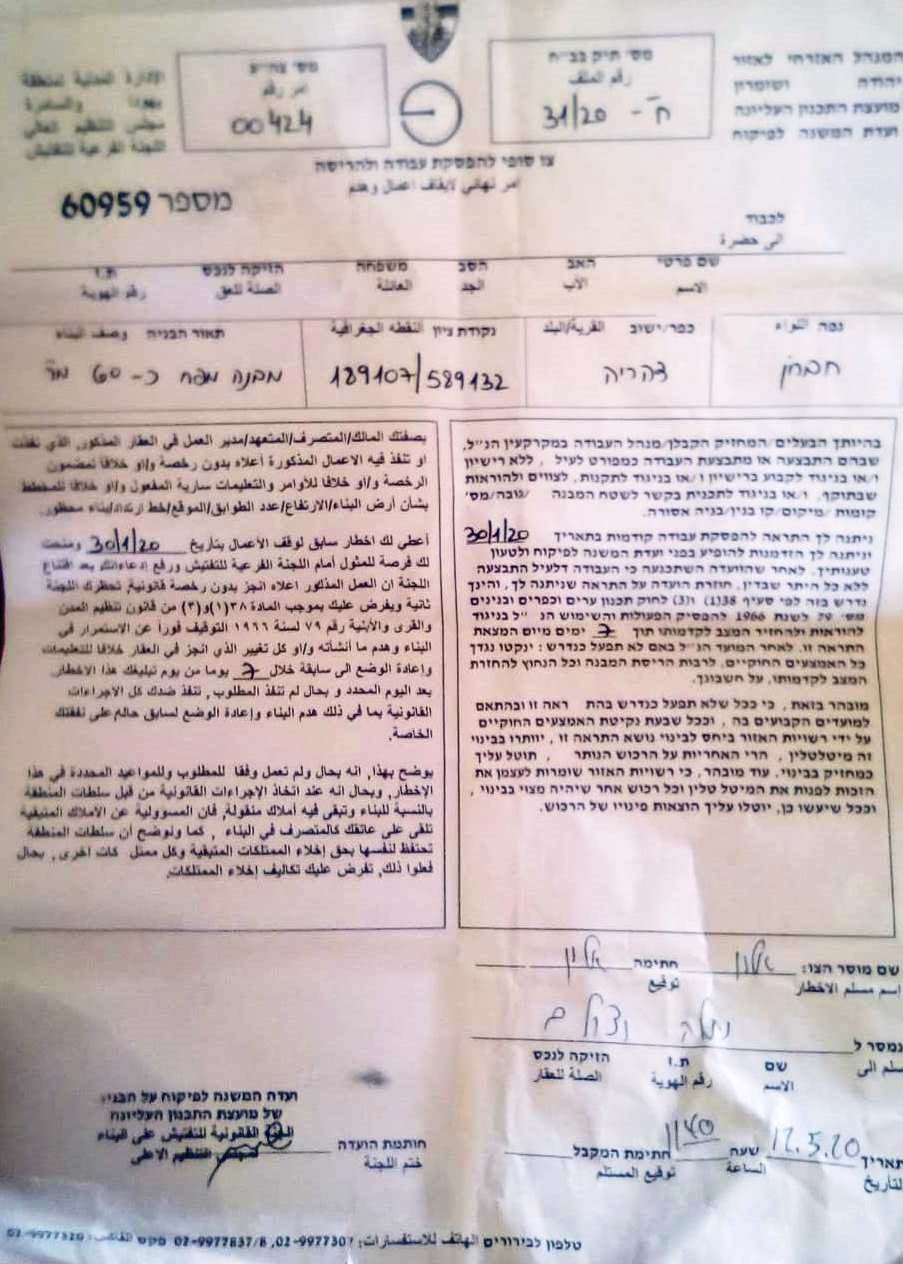 המנהל האזרחי לאזור
יהודה ושומרון
מועצת התכנון העליונה
ועדת המשנה לפיקוח
מס׳ תיק בב״ח
رقم الملف
ח- 31/20
מס׳ צה״ע
امر رقم
00424
الإدارة المدنية لمنطقة
يهودا والسامرة
مجلس التنظيم العالي
اللجنة الفرعية للتفتيش
צו סופי להפסקת עבודה ולהריסה
امر نهائي لايقاف اعمال وهدم
מספר 60959
לכבוד
الى حضرة
שם פרטי האב הסב משפחה הזיקה לנכס ת.ז
الاسم الأب الجد العائلة الصلة للعق رقم الهوية
נפה اللواء
חברון
כפר/ישוב القرية/البلد
דהריה
נקודת ציון النقطه الجغرافية
189107/589132
תאור הבניה وصف البناء
מבנה מפח כ-60 מ"ר
בהיותך הבעלים/המחזיק הקבלן/מנהל העבודה במקרקעין הנ״ל,
שבהם התבצעה או מתבצעת העבודה כמפורט לעיל , ללא רישיון
ו/או בניגוד לקבוע ברישיון ו/או בניגוד לתקנות, לצווים ולהוראות
שבתוקף, ו/או בניגוד לתכנית בקשר לשטח המבנה /גובה/מס׳
קומות /מיקום/קו בנין/בניה אסורה.
ניתנה לך התראה להפסקת עבודה קודמות בתאריך 30/1/20
וניתנה לך הזדמנות להופיע בפני ועדת המשנה לפיקוח ולטעון
טענותיך. לאחר שהוועדה השתכנעה כי העבודה דלעיל התבצעה
ללא כל היתר שבדין, חוזרת הועדה על התראה שניתנה לך, והינך
נדרש בזה לפי סעיף 38(1) ו(3) לחוק תכנון ערים וכפרים ובנינים
מס׳ 79 לשנת 1966 להפסיק הפעולות והשימוש הנ ״ל בניגוד
להוראות ולהחזיר המצב לקדמותו תוך 7 ימים מיום המצאת
התראה זו. לאחר המועד הנ״ל באם לא תפעל כנדרש : ינקטו נגדך
כל האמצעים החוקיים, לרבות הריסת המבנה וכל הנחוץ להחזרת
המצב לקדמותו, על חשבונך.
מובהר בזאת , כי ככל שלא תפעל כנדרש בהת ראה זו ובהתאם
למועדים הקבועים בה , וככל שבעת נקיטת האמצעים החוקיים
על ידי רשויות האזור ביחס לבינוי נושא התראה זו , יוותרו בבינוי
זה מיטלטלין, הרי האחריות על הרכוש הנותר , תוטל עליך
כמחזיק בבינוי. עוד מובהר, כי רשויות האזור שומרות לעצמן את
הזכות לפנות את המיטל טלין וכל רכוש אחר שיהיה מצוי בבינוי ,
וככל שיעשו כן, יוטלו עליך הוצאות פינויו של הרכוש.
بصفتك المالك/المتصرف/المتعهد/مدير العمل في العقار المذكور الذي نفذت
او تنفذ فيه الاعمال المذكورة أعلاه بدون رخصة و/او خلافا لمضمون
الرخصة و/او خلافا للأوامر والتعليمات سارية المفعول و/او خلافا للمخطط
بشأن أرض البناء/الارتفاع/عدد الطوابق/الموقع/خط ارتداد/بناء محظور.
أعطي لك اخطار سابق لوقف الأعمال بتأريخ 30/1/20 ومنحت
لك فرصة للمثول أمام اللجنة الفرعية للتفتيش ورفع إدعاءاتك بعد اقتناع
اللجنة ان العمل المذكور اعلاه انجز بدون رخصة قانونية, تحظرك اللجنة
ثانية ويفرض عليك بموجب المادة ٣٨(١)و(٣) من قانون تنظيم المدن
والقرى والأبنية رقم ٧٩ لسنة ١٩٦٦ التوقيف فورا عن الاستمرار في
البناء وهدم ما أنشأته و/او كل تغيير الذي انجز في العقار خلافا للتعليمات
وإعادة الوضع الى سابقة خلال 7 يوما من يوم تبليغك هذا الإخطار.
بعد اليوم المحدد و بحال لم تنفذ المطلوب , تنفذ ضدك كل الاجراءات
القانونية بما في ذلك هدم البناء وإعادة الوضع لسابق حاله على نفقتك
الخاصة.
يوضح بهذا, انه بحال ولم تعمل وفقا للمطلوب وللمواعيد المحددة في هذا
الإخطار, وبحال انه عند اتخاذ الإجراءات القانونية من قبل سلطات المنطقة
بالنسبة للبناء وتبقى فيه أملاك منقولة, فان المسوولية عن الاملاك المتبقية
تلقى على عاتقك كالمتصرف في البناء , كما ونوضح أن سلطات المنطقة
تحتفظ لنفسها بحق إخلاء الممتلكات المتبقية وكل ممتل كات اخرى, بحال
فعلوا ذلك, تفرض عليك تكاليف إخلاء الممتلكات.
שם מוסר הצו: אלון חתימה אלון
إسم مسلم الاخطار توقيع
נמסר ל
سلم الى
שם ת.ז הזיקה לנכס
الاسم رقم الهوية الصلة للعقار
תאריך 12.5.20 שעה 11:40 חתימת המקבל
التاريخ الساعة توقيع المستلم
חותמת הועדה
ختم اللجنة
ועדת המשנה לפיקוח על הבניה
של מועצת התכנון העליונה
اللجنة القانونية للتفتيش على البناء
لمجلس التنظيم الاعلى
טלפון לבירורים الهاتف للاستفسارات: 02-9977307, 02-9977837/8 פקס الفاكس: 02-9977320